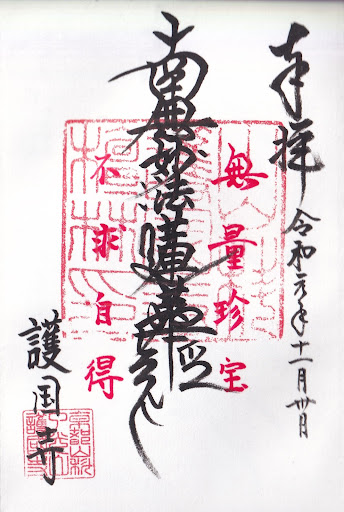 奉拝
令和元年十一月卅日
無量珍宝
南無妙法蓮華経
不求自得
護国寺